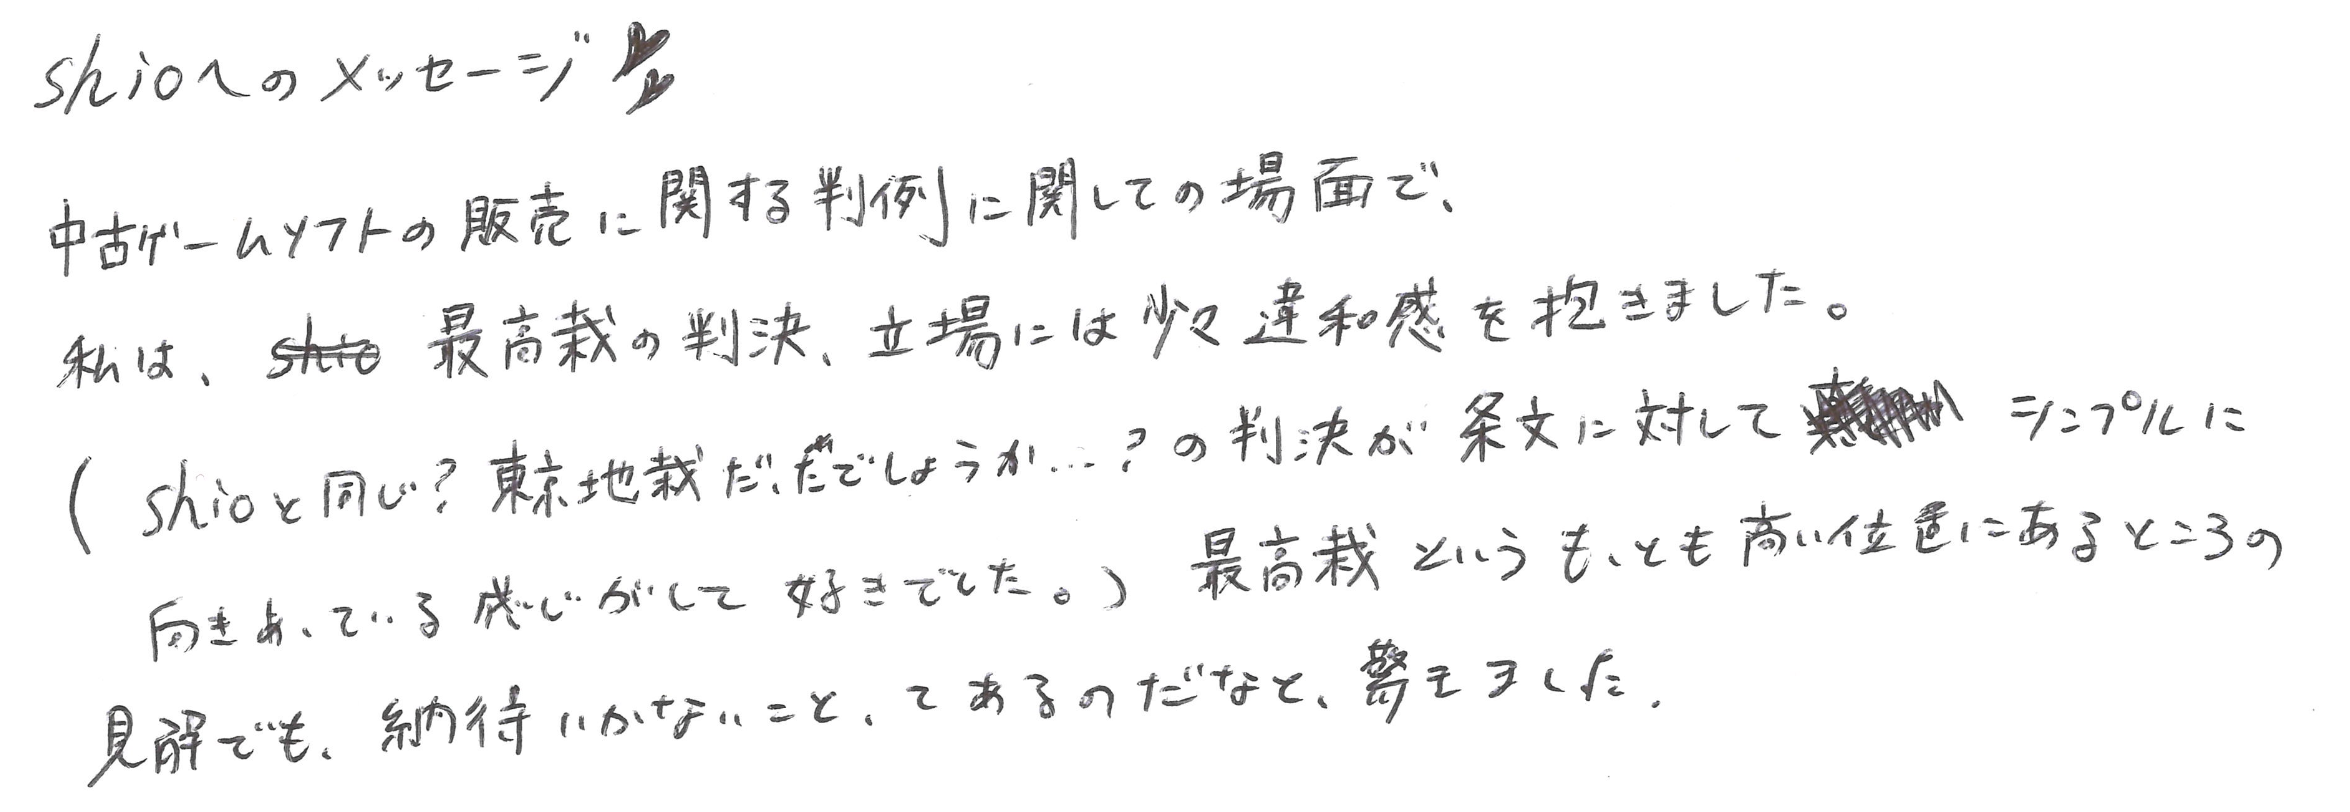 shioへのメッセージ
中古ゲームソフトの販売に関する判例に関しての場面で、
私は、 最高裁の判決、立場には少々違和感を抱きました。
( shioと同じ?東京地裁だったでしょうか…?の判決が条文に対して シンプルに
向きあっている感じがして好きでした。) 最高裁というもっとも高い位置にあるところの
見解でも、納得いかないことってあるのだなと、驚きました.